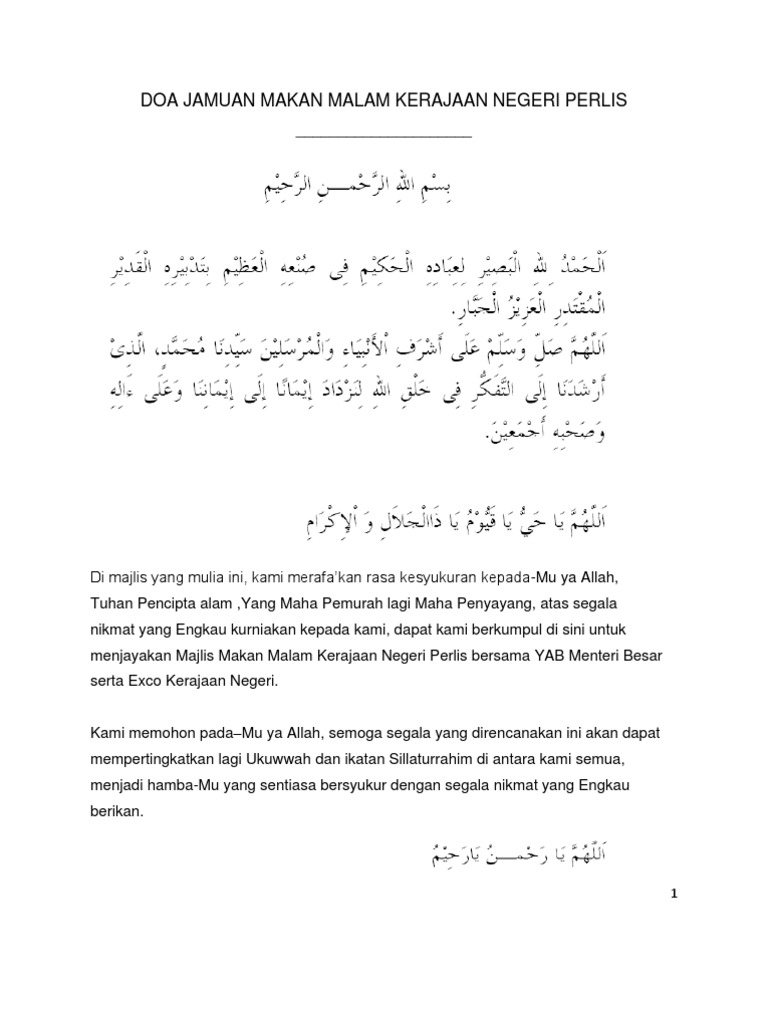 DOA JAMUAN MAKAN MALAM KERAJAAN NEGERI PERLIS
بِسْمِ اللهِ الرَّحْمـــنِ الرَّحِيْمِ
اَلْحَمْدُ لِلهِ الْبَصِيْرِ لِعِبَادِهِ الْحَكِيْمِ فِى صُنْعِهِ الْعَظِيْمِ بِتَدْبِيْرِهِ الْقَدِيْرِ
الْمُقْتَدِرِ الْعَزِيْزُ الْجَبَّارِ.
اَللَّهُمَّ صَلِّ وَسَلِّمْ عَلَى أَشْرَفِ الْأَنْبِيَاءِ وَالْمُرْسَلِيْنَ سَيِّدِنَا مُحَمَّدٍ، الَّذِىْ
أَرْشَدَنَا إِلَى التَّفَكُّرِ فِى خَلْقِ اللهِ لِنَزْدَادَ إِيْمَانًا إِلَى إِيْمَانِنَا وَعَلَى ءَالِهِ
وَصَحْبِهِ أَجْمَعِيْنَ.
اَللَّهُمَّ يَا حَيُّ يَا قَيُّوْمُ يَا ذَاالْجَلاَلِ وَ اْلإِكْرَامِ
Di majlis yang mulia ini, kami merafa’kan rasa kesyukuran kepada-Mu ya Allah,
Tuhan Pencipta alam ,Yang Maha Pemurah lagi Maha Penyayang, atas segala
nikmat yang Engkau kurniakan kepada kami, dapat kami berkumpul di sini untuk
menjayakan Majlis Makan Malam Kerajaan Negeri Perlis bersama YAB Menteri Besar
serta Exco Kerajaan Negeri.
Kami memohon pada–Mu ya Allah, semoga segala yang direncanakan ini akan dapat
mempertingkatkan lagi Ukuwwah dan ikatan Sillaturrahim di antara kami semua,
menjadi hamba-Mu yang sentiasa bersyukur dengan segala nikmat yang Engkau
berikan.
اَللَّهُمَّ يَا رَحْمـــنُ يَارَحِيْمُ
1